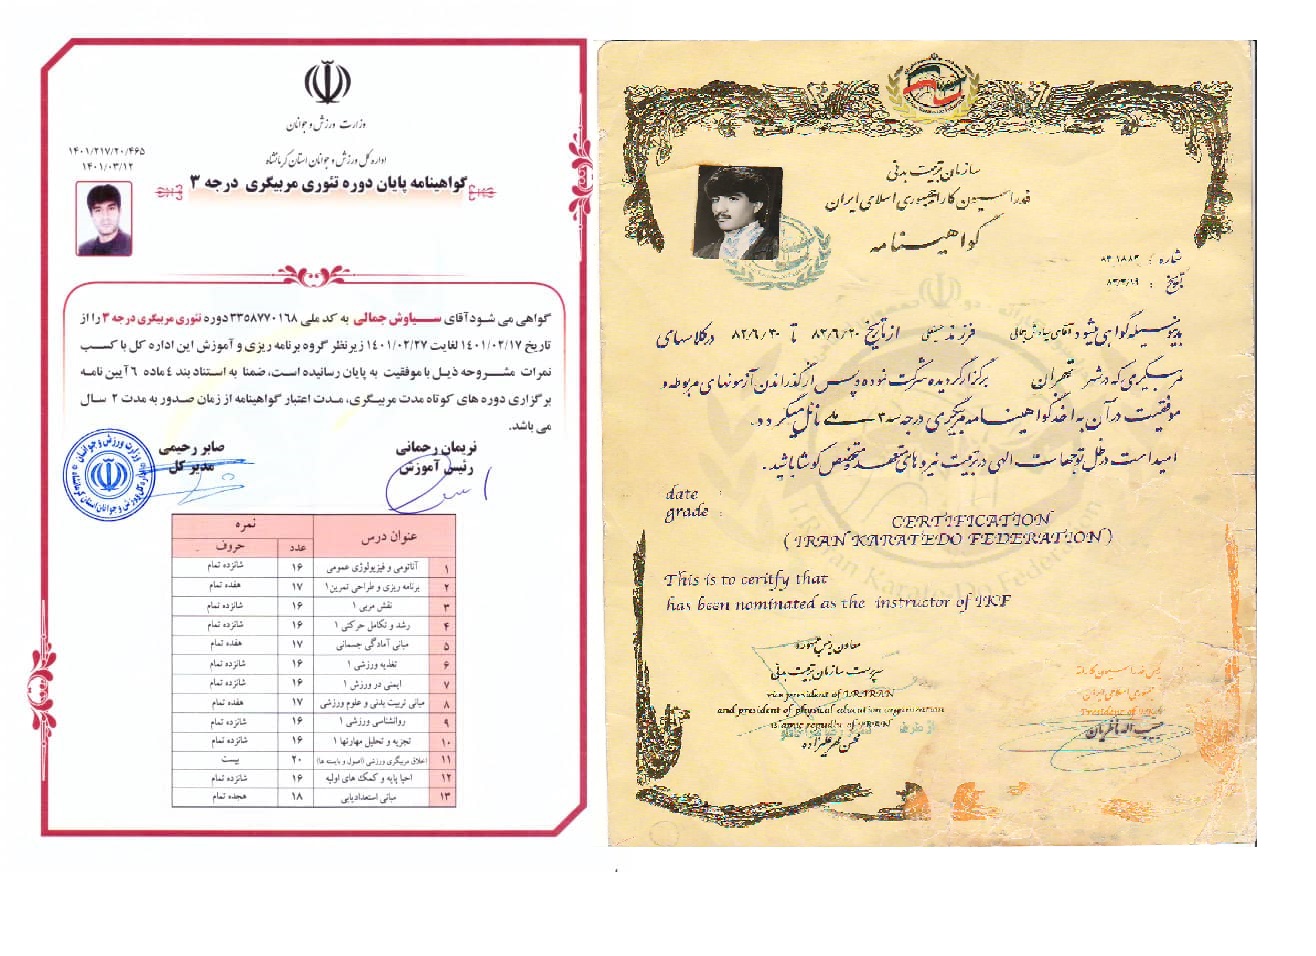 وزارت ورزش و جوانان
اداره کل ورزش و جوانان استان کرمانشاه
۱۴۰۱/۲۱۷/۲۰/۴۶۵
۱۴۰۱/۰۳/۱۲
گواهینامه پایان دوره تئوری مربیگری درجه ۳
گواهی می شود آقای سیاوش جمالی به کد ملی ۳۳۵۸۷۷۰۱۶۸ دوره تئوری مربیگری درجه ۳ را از
تاریخ ۱۴۰۱/۰۲/۱۷ لغایت ۱۴۰۱/۰۲/۲۷ زیر نظر گروه برنامه ریزی و آموزش این اداره کل با کسب
نمرات مشروحه ذیل با موفقیت به پایان رسانیده است، ضمنا به استناد بند ۴ ماده ۶ آیین نامه
برگزاری دوره های کوتاه مدت مربیگری، مدت اعتبار گواهینامه از زمان صدور به مدت ۲ سال
می باشد.
نریمان رحمانی
رئیس آموزش
صابر رحیمی
مدیر کل
عنوان درس نمره
عدد حروف
۱ آناتومی و فیزیولوژی عمومی ۱۶ شانزده تمام
۲ برنامه ریزی و طراحی تمرین ۱ ۱۷ هفده تمام
۳ نقش مربی ۱ ۱۶ شانزده تمام
۴ رشد و تکامل حرکتی ۱ ۱۶ شانزده تمام
۵ مبانی آمادگی جسمانی ۱۷ هفده تمام
۶ تغذیه ورزشی ۱ ۱۶ شانزده تمام
۷ ایمنی در ورزش ۱ ۱۶ شانزده تمام
۸ مبانی تربیت بدنی و علوم ورزشی ۱۷ هفده تمام
۹ روانشناسی ورزشی ۱ ۱۶ شانزده تمام
۱۰ تجزیه و تحلیل مهارتها ۱ ۱۶ شانزده تمام
۱۱ اخلاق مربیگری ورزشی (اصول و بایسته ها) ۲۰ بیست
۱۲ احیا پایه و کمک های اولیه ۱۶ شانزده تمام
۱۳ مبانی استعدادیابی ۱۸ هجده تمام
سازمان تربیت بدنی
فدراسیون کاراته جمهوری اسلامی ایران
گواهینامه
شماره :
تاریخ : ۸۳/۳/۱۹
بدینوسیله گواهی میشود آقای سیاوش جمالی فرزند از تاریخ ۸۲/۶/۲۰ تا ۸۲/۶/۳۰ در کلاسهای
مربیگری که در شهر تهران برگزار گردیده شرکت نموده و پس از گذراندن آزمونهای مربوطه و
موفقیت در آن به اخذ گواهینامه مربیگری درجه ۳ نائل میگردد.
امید است در ظل توجهات الهی در تربیت نیروهای متعهد و متخصص کوشا باشید.
date :
grade :
CERTIFICATION
( IRAN KARATEDO FEDERATION )
This is to ceritfy that
has been nominated as the instructor of IKF
معاون رئیس جمهور
سرپرست سازمان تربیت بدنی
vice president of I.R.IRAN
and president of physical education organization
islamic republic of IRAN
محسن مهرعلیزاده
رئیس فدراسیون کاراته
جمهوری اسلامی ایران